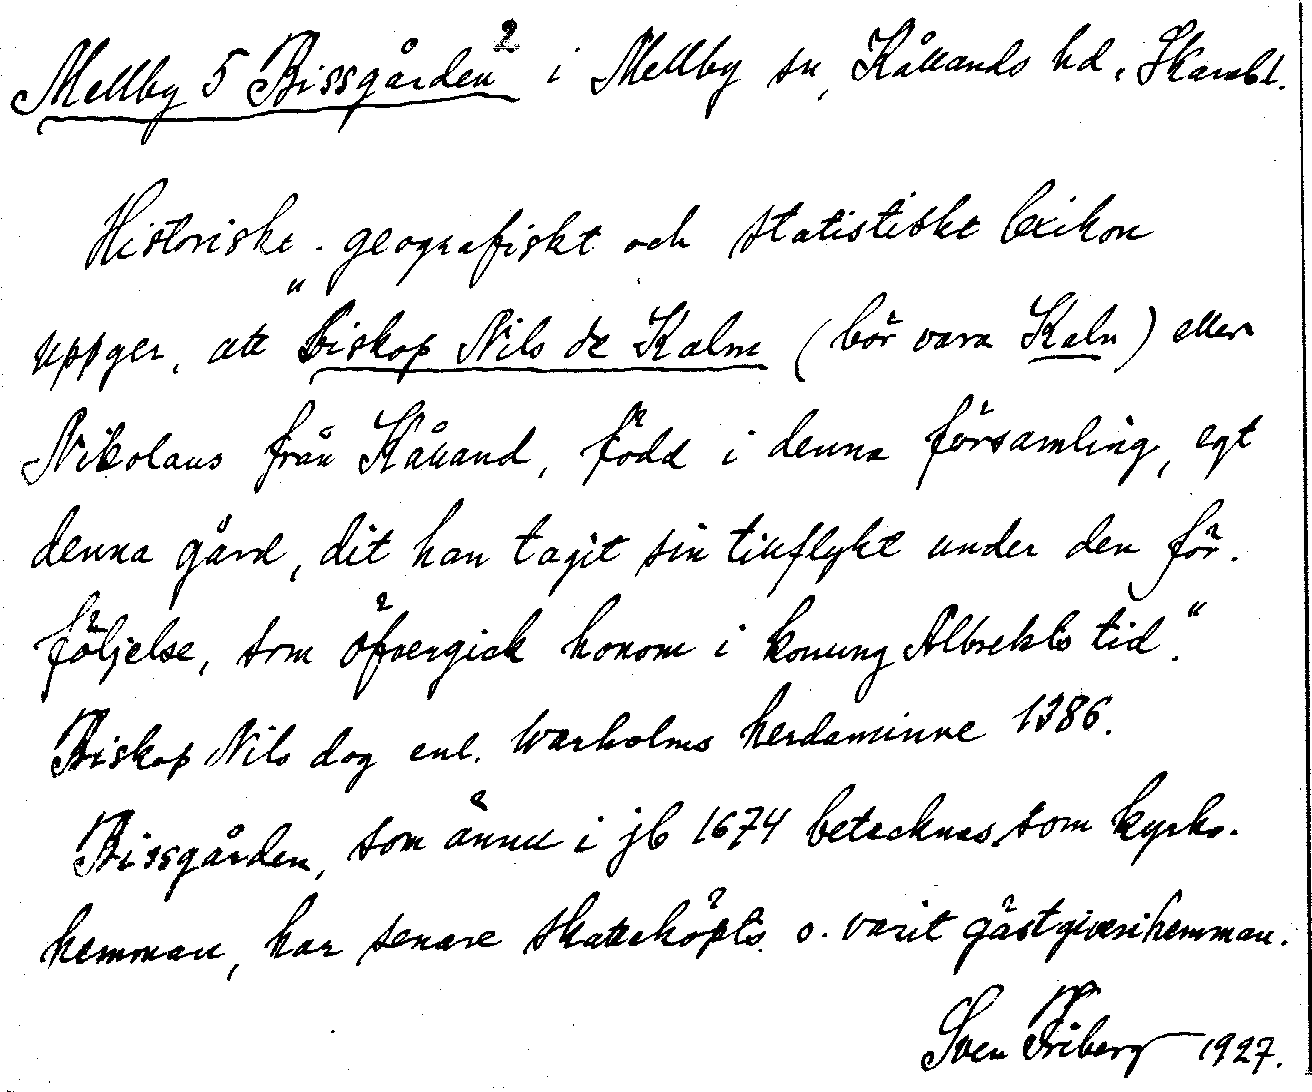 Mellby 5 Bissgården² i Mellby sn, Kållands hd, Skarabl.
Historiskt-geografiskt och statistiskt lexikon
uppger, att "biskop Nils de Kalm (bör vara Kaln) eller
Nikolaus från Kålland, född i denna församling, egt
denna gård, dit han tagit sin tillflykt under den för-
följelse, som öfvergick honom i konung Albrekts tid."
Biskop Nils dog enl. Warholms herdaminne 1386.
Bissgården, som ännu i jb 1674 betecknas som kyrko-
hemman, har senare skatteköpts o. varit gästgiverihemman.
Sven Friberg 1927.